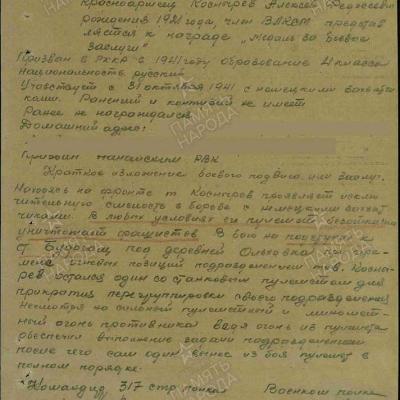 Красноармеец Коснырев Алексей Сергеевич
рождения 1921 года, член ВЛКСМ представ
ляется к награде "Медаль за боевые
заслуги"
Призван в РККА с 1941 году образование 4 класса
Национальность русский
Участвует с 31 октября 1941 с немецкими захватчи
ками. Ранений и контузий не имеет
Ранее не награждался
Домашний адрес:
Призван РВК
Краткое изложение боевого подвига или заслуг.
Находясь на фронте т Коснырев проявляет исклю
чительную смелость в борьбе с немецкими захват
чиками. В любых условиях его пулемет безотказно
уничтожает фашистов. В бою на подступах к
г Будогощ, под деревней Ольховка
огневых позиций подразделения тов. Косны-
рев остался один со станковым пулеметом для
прикрытия перегруппировки своего подразделения
Несмотря на сильный пулеметный и миномет-
ный огонь противника ведя огонь из пулемета
обеспечил выполнение задачи подразделением
после чего сам один вынес из боя пулемет в
полном порядке.
Командир 317 стр полка Военком полка
ПАМЯТЬ НАРОДА